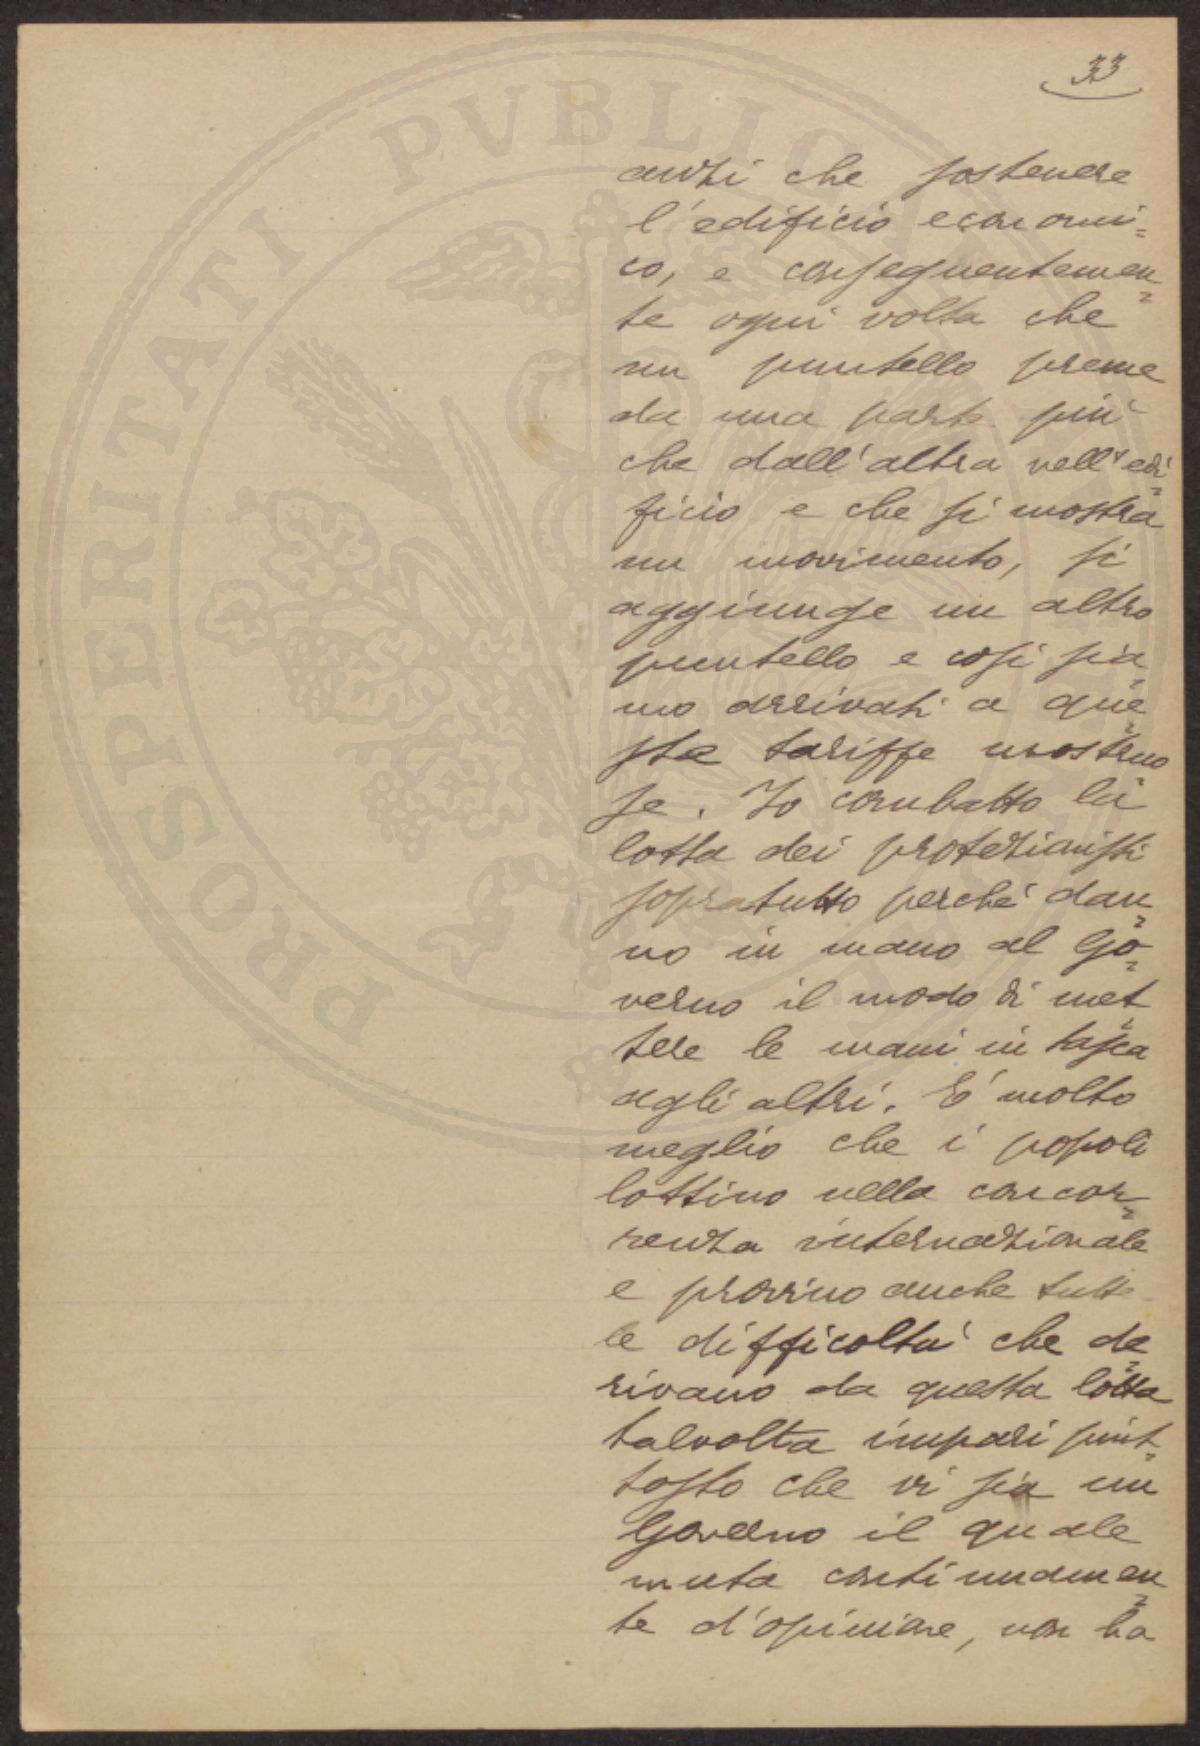 33
anzi che sostenere
l'edificio economi=
co, e conseguentemen=
te ogni volta che
un puntello preme
da una parte più
che dall'altra nell'edi=
ficio e che si mostra
un movimento, si
aggiunge un altro
puntello e così sia=
mo arrivati a que=
ste tariffe mostruo
se. Io combatto la
lotta dei protezionisti
sopratutto perché dan=
no in mano al Go=
verno il modo di met=
tere le mani in tasca
agli altri. E' molto
meglio che i popoli
lottino nella concor=
renza internazionale
e provino anche tutte
le difficoltà che de=
rivano da questa lotta
talvolta impari piut=
tosto che vi sia un
Governo il quale
muta continuamen=
te d'opinione, non ha
PROSPERITATI PVBLIC